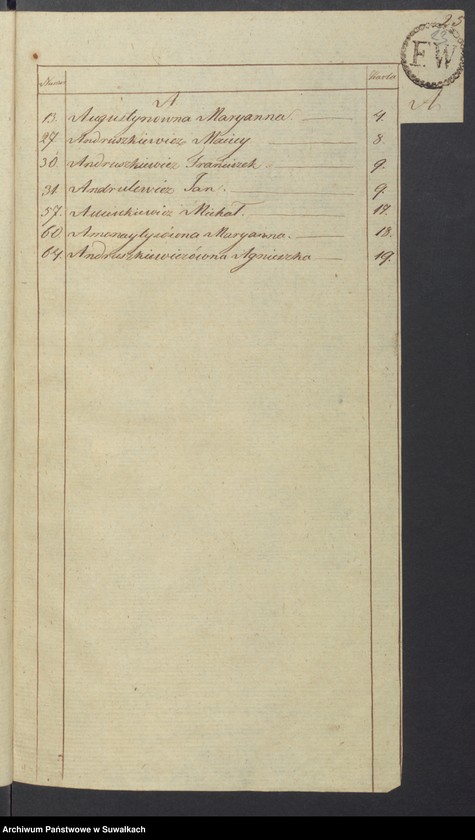 25
FW
A
Numer
Karta
A
13. Augustynowna Maryanna 4.
27. Andruszkiewicz Maciey 8.
30. Andruszkiewicz Franciszek 9.
31. Andrulewicz Jan. 9.
57. Michał. 17.
60. Maryanna. 18.
64. Andruszkiewiczówna Agnieszka 19.
Archiwum Państwowe w Suwałkach